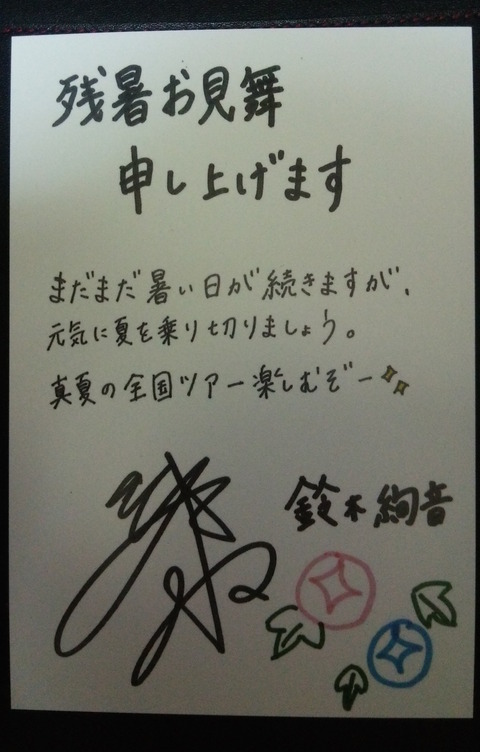 残暑お見舞
申し上げます
まだまだ暑い日が続きますが、
元気に夏を乗り切りましょう。
真夏の全国ツアー楽しむぞー
鈴木絢音